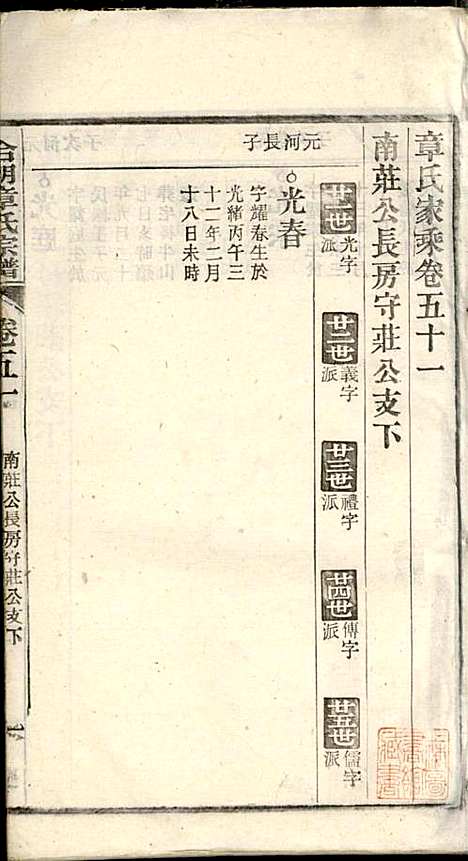 章氏家乘卷五十一
南莊公長房守莊公支下
廿一世光字派
廿二世義字派
廿三世禮字派
廿四世傳字派
廿五世儒字派
元河長子
光春
字耀春生於
光緒丙午三
十二年二月
十八日未時
章氏宗譜
卷五十一
南莊公長房守莊公支下